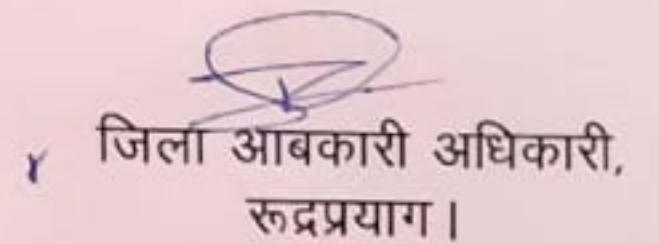 जिला आबकारी अधिकारी,
रूद्रप्रयाग।